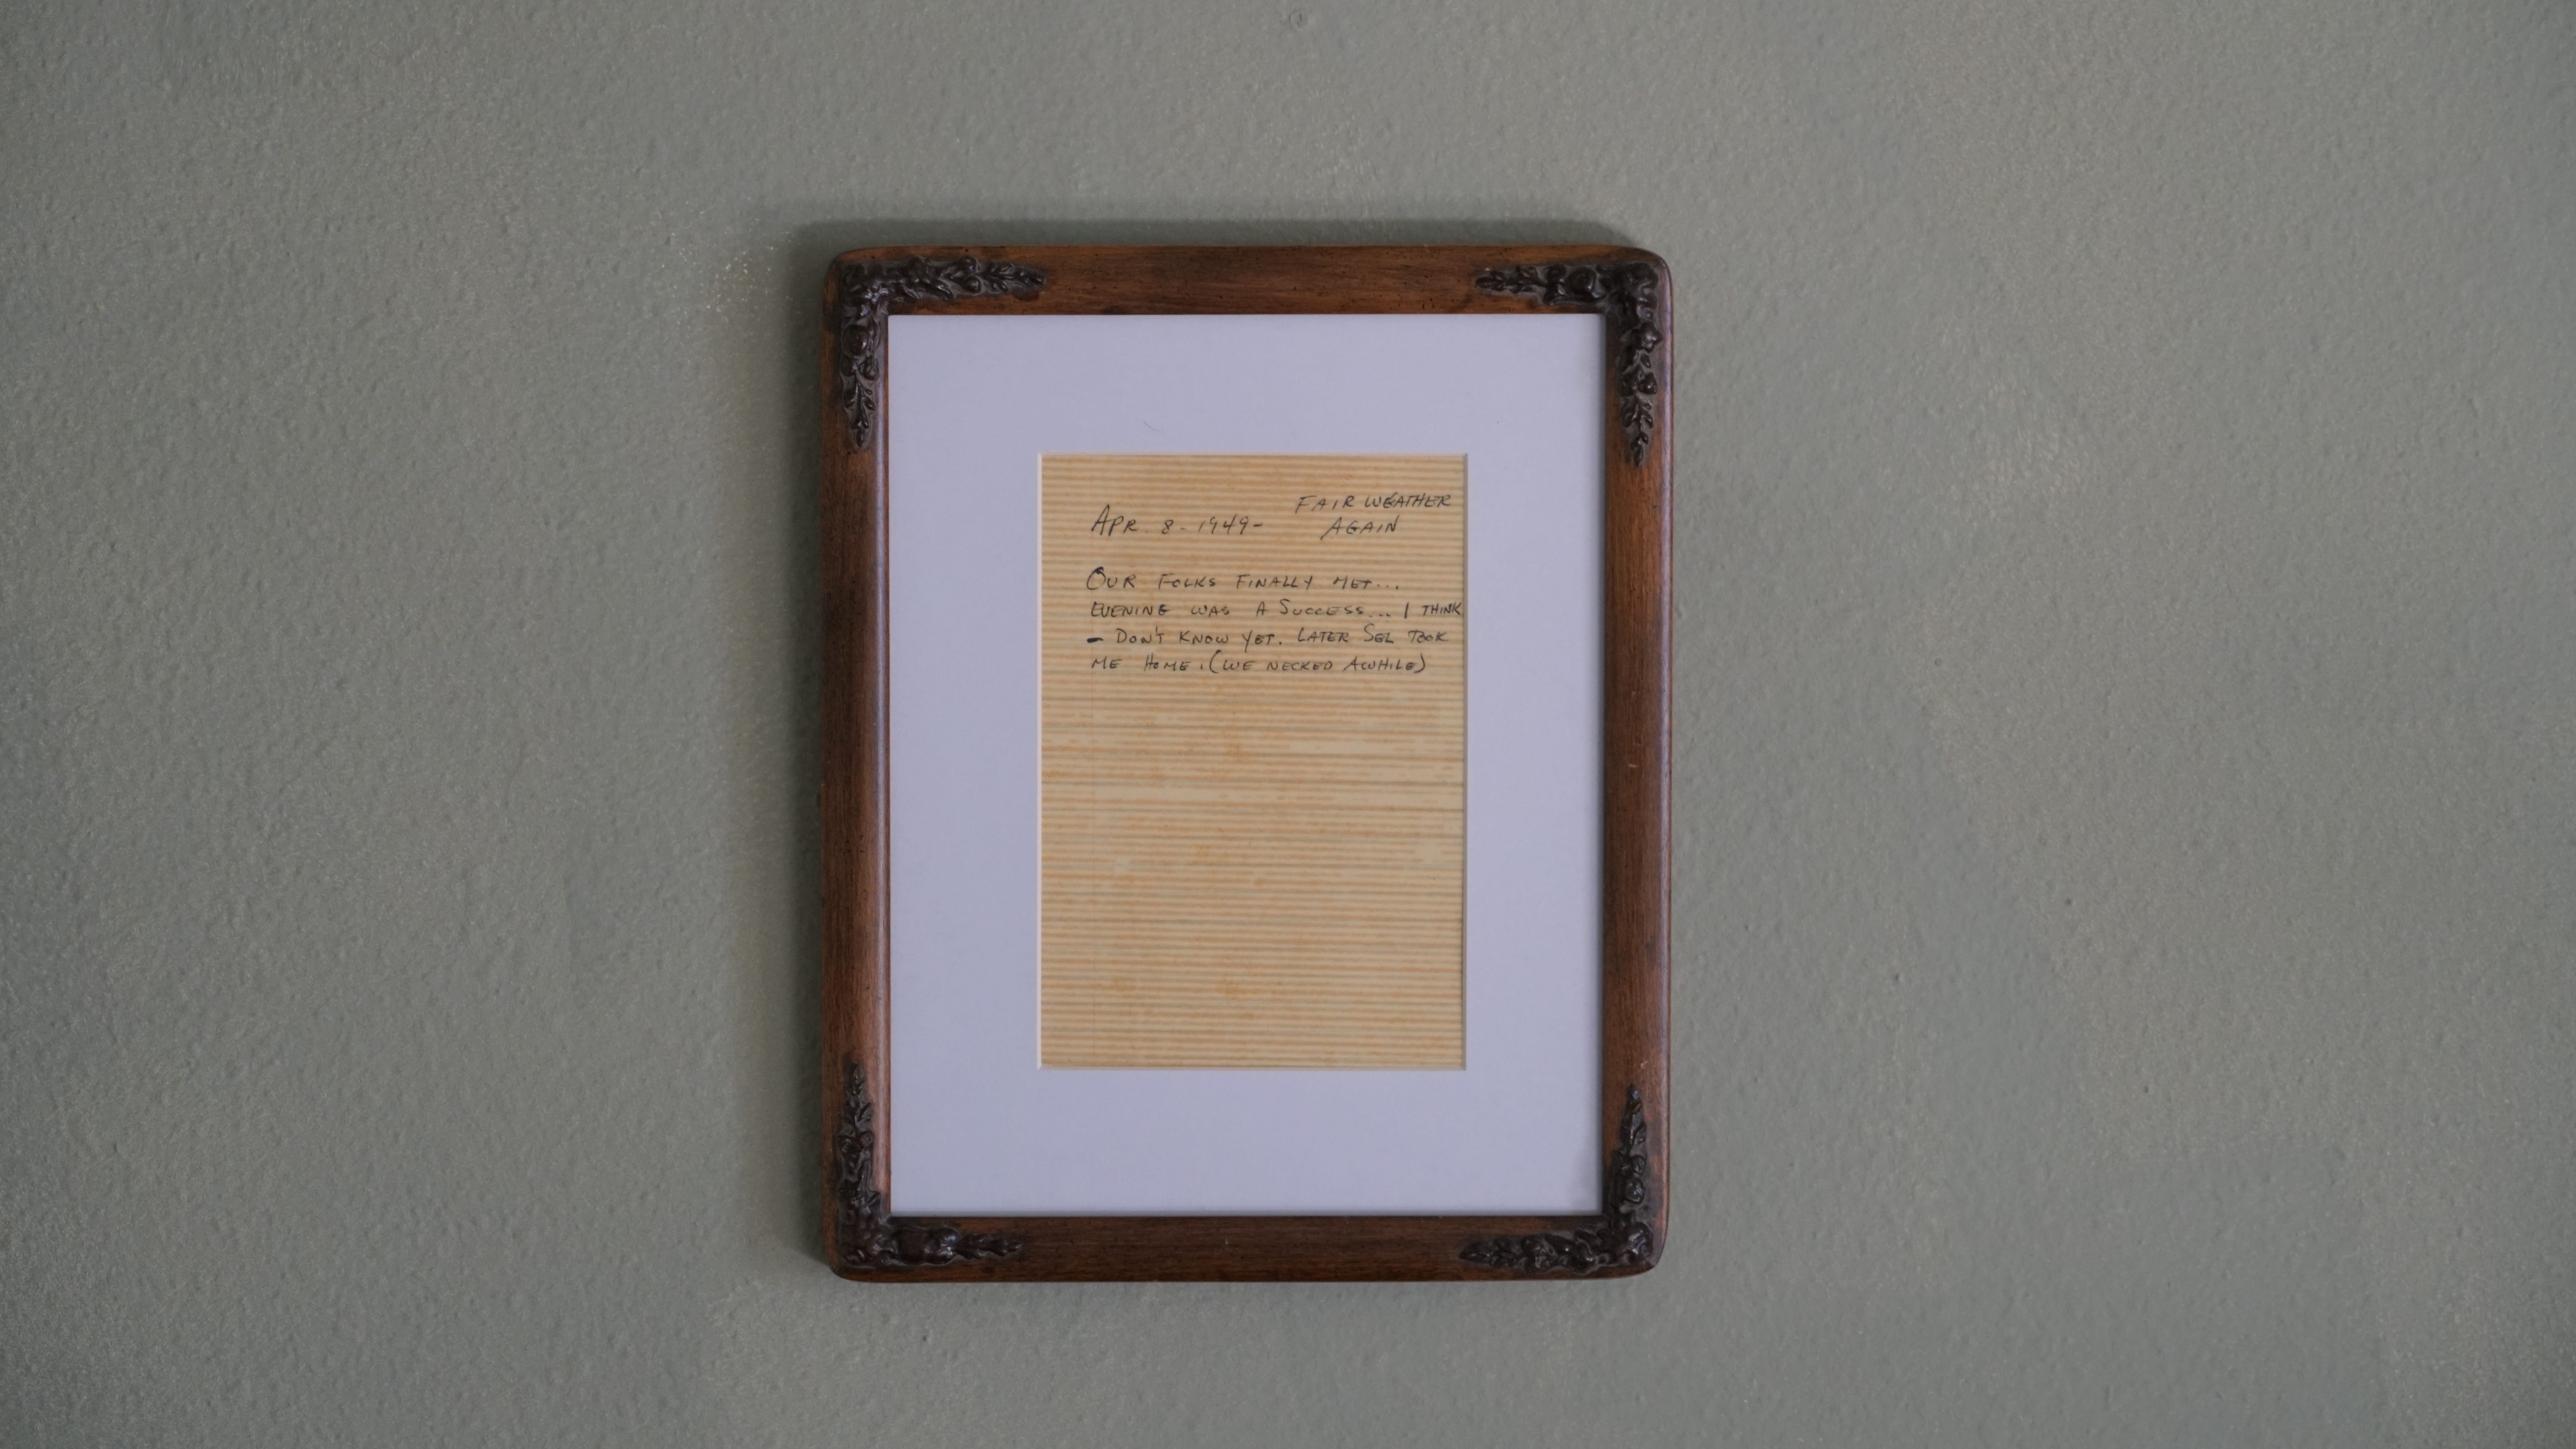 FAIR WEATHER
APR. 8-1949- AGAIN
OUR FOLKS FINALLY MET...
EVENING WAS A SUCCESS... I THINK
- DON'T KNOW YET. LATER SEL TOOK
ME HOME. (WE NECKED AWHILE)